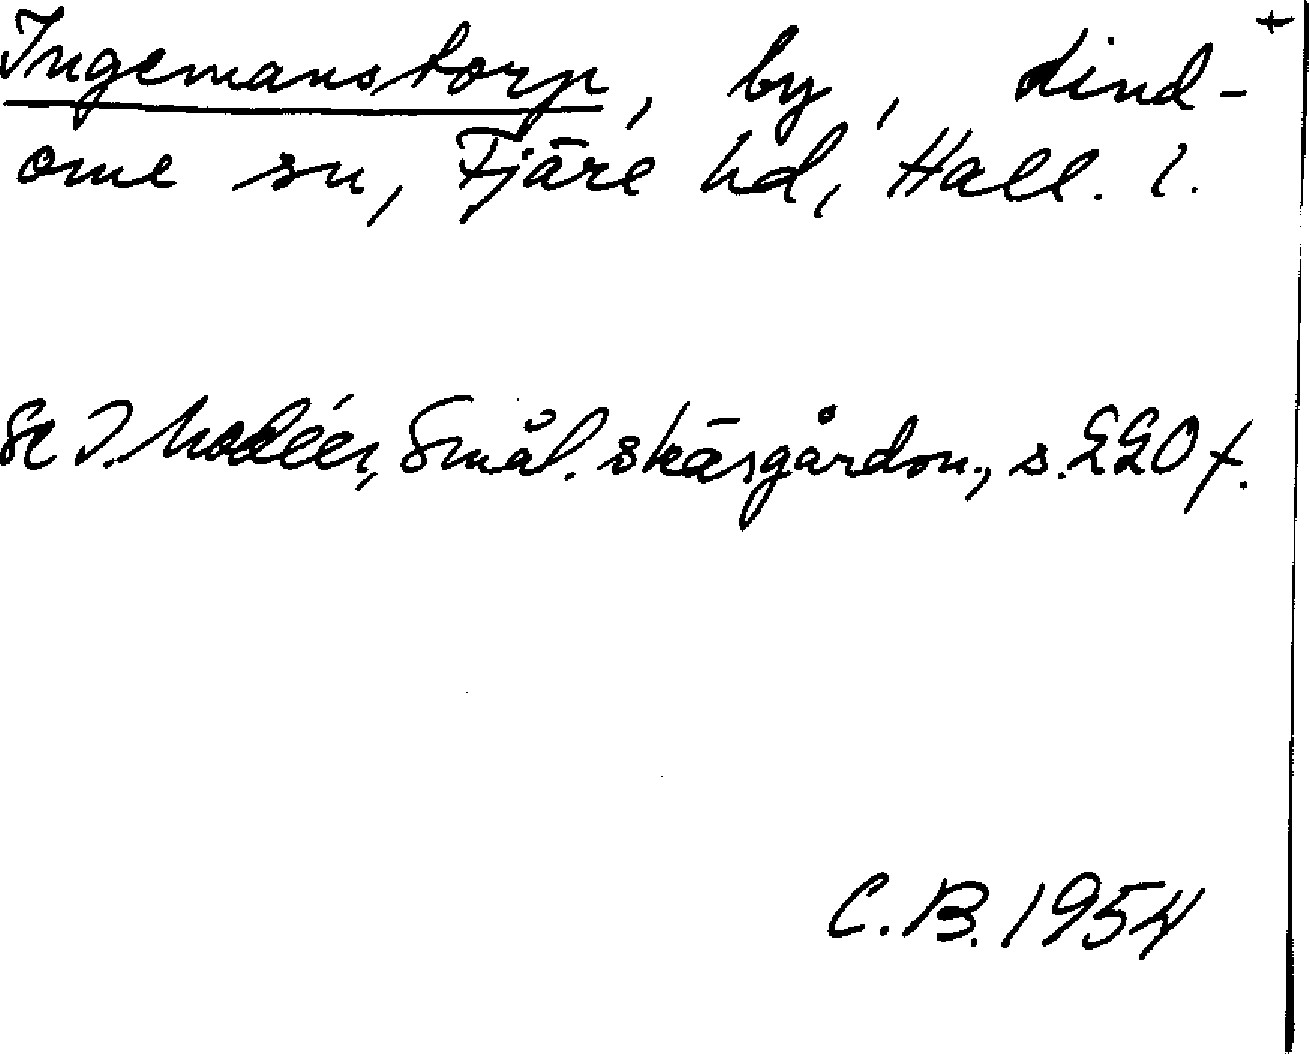 +
Ingemanstorp, by, Lind-
ome sn, Fjäre hd, Hall. l.
Se I. Modéer, Smål. skärgårdsn., s. 220 f.
C.B. 1954